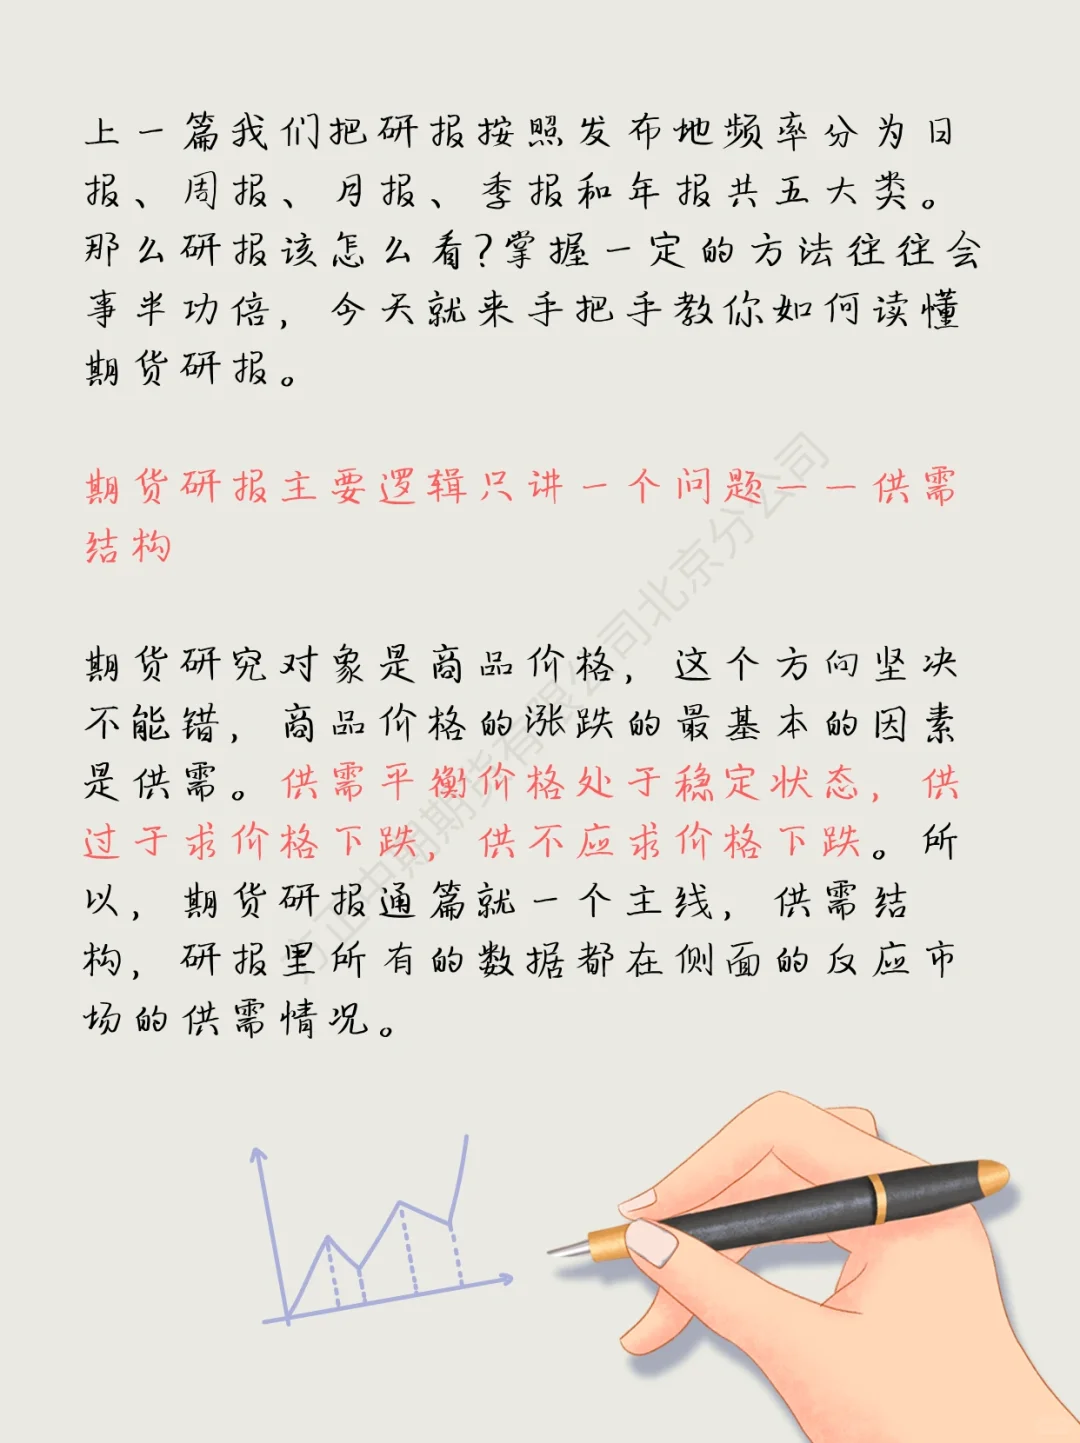 上一篇我们把研报按照发布地频率分为日
报、周报、月报、季报和年报共五大类。
那么研报该怎么看?掌握一定的方法往往会
事半功倍，今天就来手把手教你如何读懂
期货研报。
期货研报主要逻辑只讲一个问题——供需
结构
期货研究对象是商品价格，这个方向坚决
不能错，商品价格的涨跌的最基本的因素
是供需。供需平衡价格处于稳定状态，供
过于求价格下跌，供不应求价格下跌。所
以，期货研报通篇就一个主线，供需结
构，研报里所有的数据都在侧面的反应市
场的供需情况。
方正中期期货有限公司北京分公司